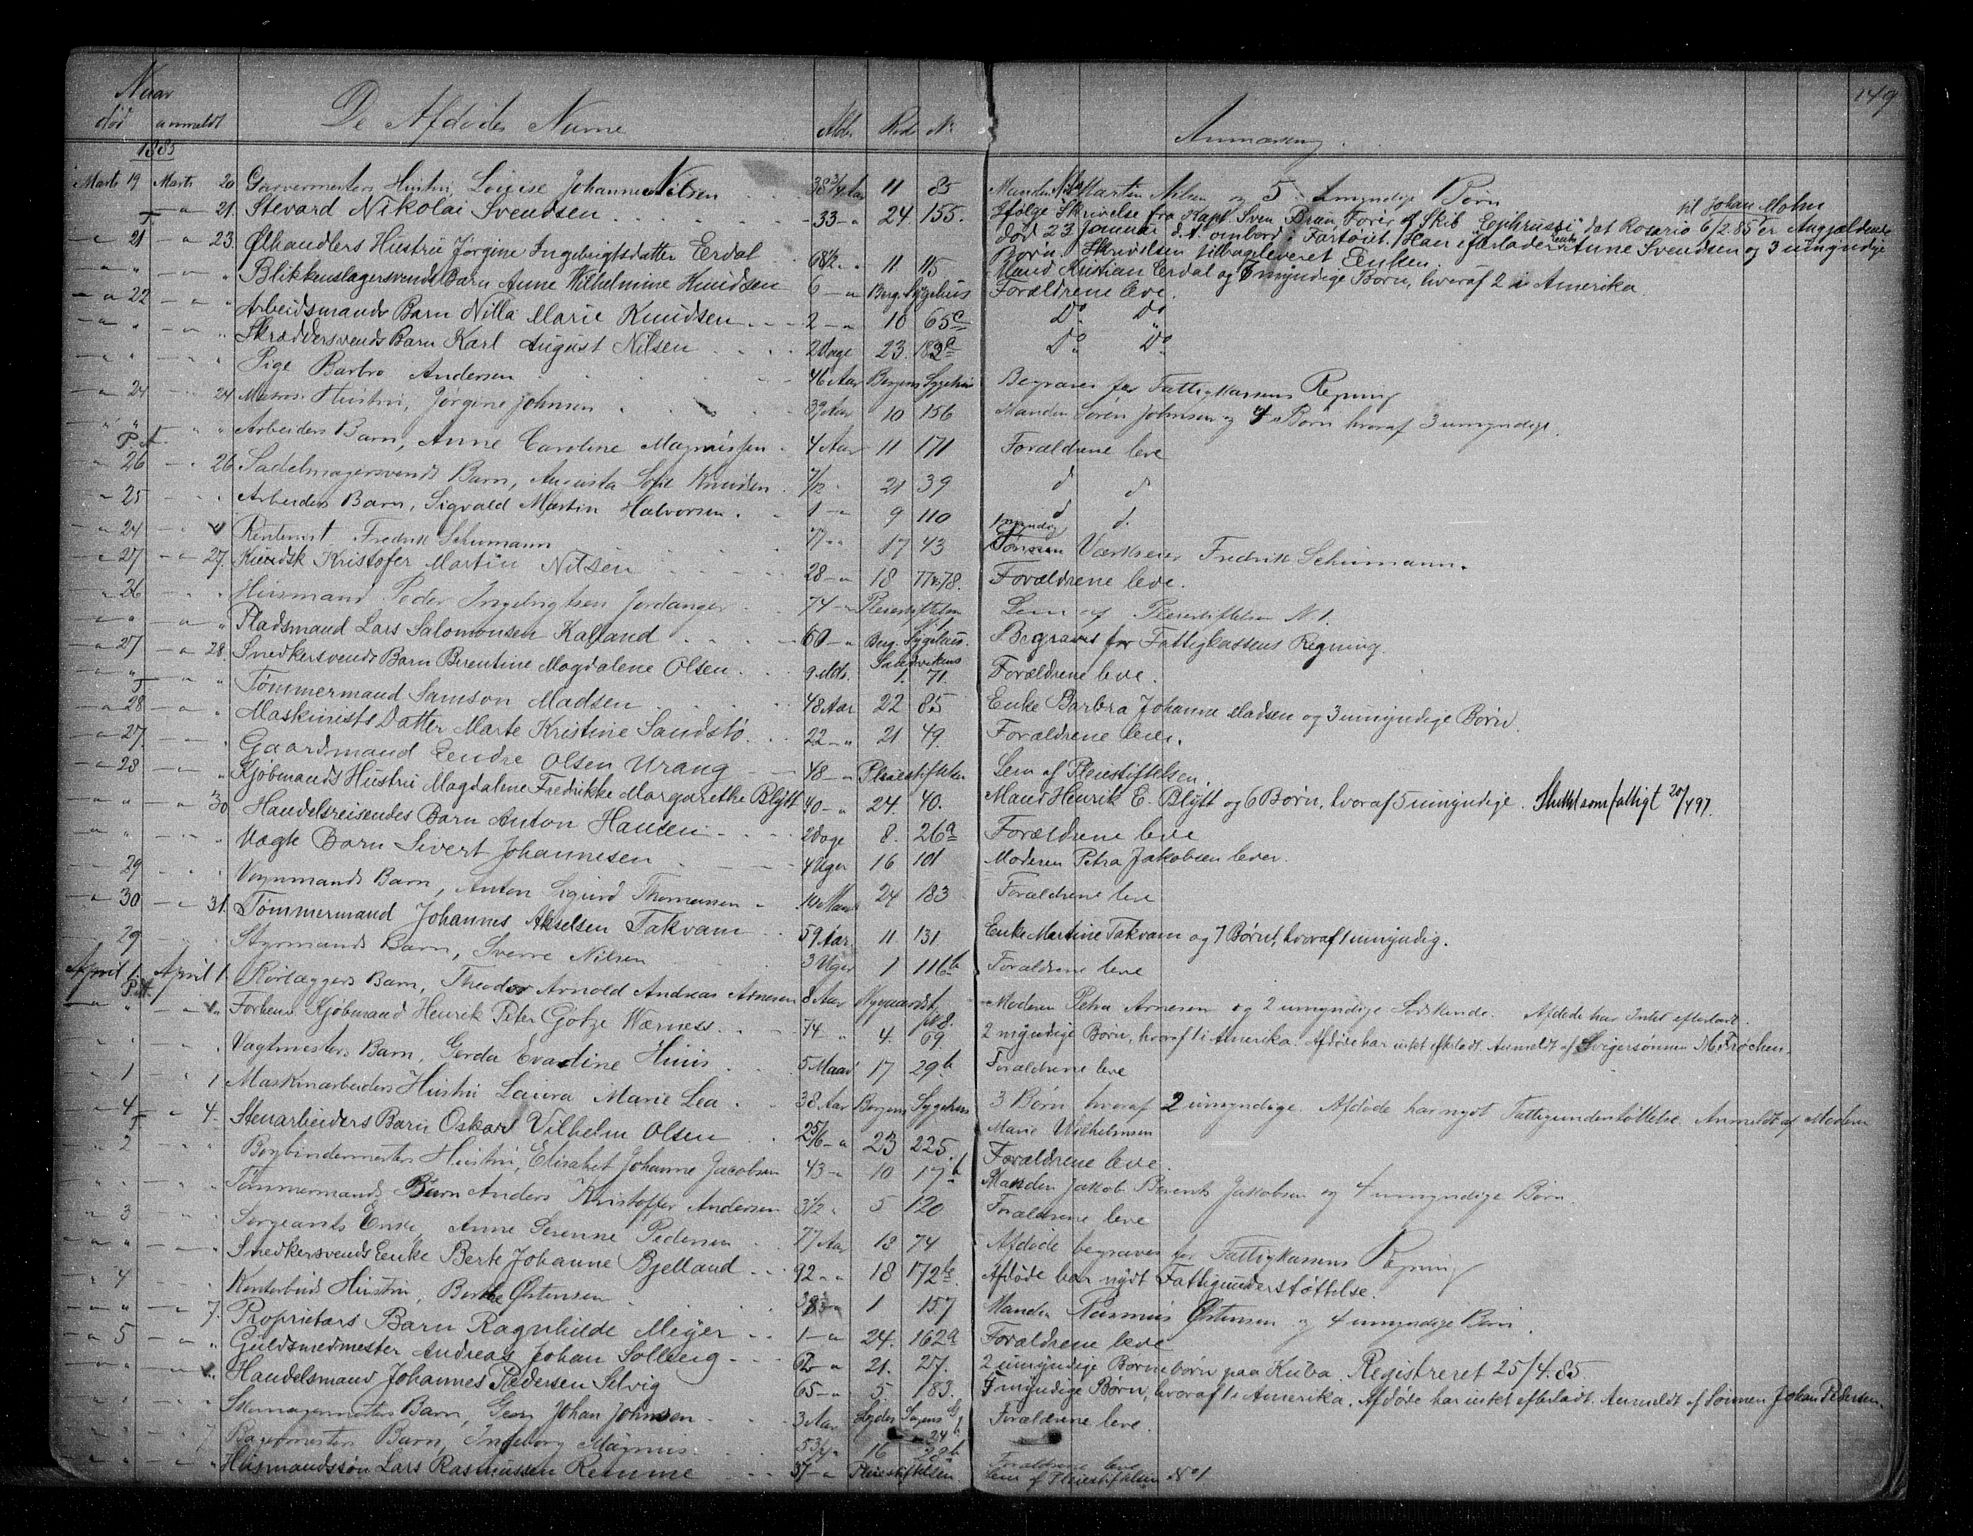 149
Naar
død anmeldt De Afdødes Navne Alder Rode No Anmærkning
1885
Marts 19 Marts 20 Garvermesters Hustru, Louise Johanne Nilsen 38 3/4 Aar 11 85 Manden Martin Nilsen og 5 Umyndige Børn
T 21. Stevard Nikolai Svendsen 33 24. 155. Ifølge Skrivelse fra Kapt Sven Brun, Fører af Skib "Ephrussi", dat Rosario 6/2.85 er Angjældende
til Johan Mohn
død 23 Januar d. A. ombord i Fartøiet. Han efterlader Enke Anne Svendsen og 3 umyndige
Børn. Skrivelsen tilbageleveret Enken.
21 23. Ølhandlers Hustru Jørgine Ingebrigtsdatter Erdal 68 1/2 11 115 Mand Kristian Erdal og 7 myndige Børn, hvoraf 2 i Amerika
" " Blikkenslagersvends Barn Anne Wilhelmine Knudsen 6 Berg. Sygehus Forældrene leve.
22 " Arbeidsmands Barn Nilla Marie Knudsen 2 10 65c Do Do
" " Skræddersvends Barn Karl August Nilsen 2 Dage 23. 182c Do Do
" " Pige Barbro Andersen 46 Aar Bergens Sygehus Begraves for Fattigkassens Regning
24 24 Matros. Hustru, Jørgine Johnsen 39 Aar 10 156 Manden Søren Johnsen og 4 Børn hvoraf 3 umyndige.
" " Arbeiders Barn, Anne Caroline Magnussen 4 Aar 11 171 Forældrene leve
P.A. 26 26 Sadelmagersvends Barn, Augusta Sofie Knudsen 7/12 21 39 d d
25 " Arbeiders Barn, Sigvald Martin Halvorsen 1 9 110 d d.
24 " Rentenist Fredrik Schumann 77 17 43 1 myndig Sønnen Værkseier Fredrik Schumann.
27 27. Kudsk Kristofer Martin Nilsen 28 18 77 & 78. Forældrene leve.
26 " Huusmand Peder Ingebrigtsen Jordanger 74 Pleiestiftelsen Lem af Pleiestiftelsen N 1.
" " Pladsmand Lars Salomonsen Kalland 60 Berg. Sygehus. Begraves for Fattigkassens Regning.
27 28. Snedkersvends Barn Berentine Magdalene Olsen 9 Mdr. Sandvikens 1. 71. Forældrene leve.
T " Tømmermand Samson Madsen 48 Aar 22 85 Enke Barbra Johanne Madsen og 3 umyndige Børn.
28 " Maskinists Datter Marte Kristine Sandstø 22 21 49. Forældrene leve.
27. " Gaardmand Endre Olsen Urang 48 Pleiestiftelsen Lem af Pleiestiftelsen.
28 " Kjøbmands Hustru Magdalene Fredrikke Margarethe Blytt 40 24. 40. Mand Henrik E. Blytt og 6 Børn, hvoraf 5 umyndige. Sluttet som fattigt 20/4 97.
" 30 Handelsreisendes Barn Anton Hansen 2 Dage 8. 26a Forældrene leve
" " Vægts Barn Sivert Johannesen 4 Uger 16 101 Moderen Petra Jakobsen lever.
29 " Vognmands Barn, Anton Sigurd Thomassen 10 Maan 24 183 Forældrene leve
30 31. Tømmermand Johannes Akselsen Takvam 59 Aar 11 131. Enke Martine Takvam og 7 Børn, hvoraf 1 umyndig.
29 " Styrmands Barn, Sverre Nilsen 3 Uger 1 116b Forældrene leve
April 1. April 1. Rørlæggers Barn, Theodor Arnold Andreas Arnesen 8 Aar Nygaardst. Moderen Petra Arnesen og 2 umyndige Sødskende. Afdøde har Intet efterladt.
P.A. " Forhenv. Kjøbmand Henrik Peter Gotze Wærness 74 4. 69 2 myndige Børn, hvoraf 1 i Amerika. Afdøde har intet efterladt. Anmeldt af Svigersønnen M. Trochen.
" " Vagtmesters Barn, Gerda Evadine Huus 5 Maan 17 29b Forældrene leve
1 1 Maskinarbeiders Hustru Laura Marie Lea 38 Aar Bergens Sygehus 3 Børn hvoraf 2 umyndige. Afdøde har nydt Fattigunderstøttelse. Anmeldt af Moderen
Marie Wilhelmsen
4 4. Stenarbeiders Barn Oskar Vilhelm Olsen 2 5/6 23 225. Forældrene leve.
T 2 " Bogbindermesters Hustru, Elisabet Johanne Jacobsen 43 10 17b Manden Jakob Berents Jakobsen og 4 umyndige Børn.
" " Tømmermands Barn Anders Kristoffer Andersen 3 1/2 5 120 Forældrene leve
3 " Sergeants Enke, Anne Serenne Pedersen 77 Aar 13 74 Afdøde begraves for Fattigkassens Regning
" " Snedkersvends Enke Berte Johanne Bjelland 92 18 172b. Afdøde har nydt Fattigunderstøttelse.
4 " Kontorbuds Hustru, Berthe Østensen 1 157 Manden Rasmus Østensen og 4 umyndige Børn.
" 7. Proprietærs Barn Ragnhilde Meyer 1 24. 162a Forældrene leve
5 " Guldsmedmester Andreas Johan Solberg 62 21. 27. 2 umyndige Børnebørn paa Kuba. Registreret 25/4.85.
" " Handelsmand Johannes Pedersen Selvig 65 5 183. 7 myndige Børn, hvoraf 1 i Amerika. Afdøde har intet efterladt. Anmeldt af Sønnen Johan Pedersen.
" " Skomagermesters Barn, Georg Johan Johnsen 3 Aar 24b Forældrene leve.
" 7 Bagermesters Barn, Ingeborg Magnus 5 3/4 16 22b Forældrene leve
Husmandssøn Lars Rasmussen Remme 37 Pleiestiftelsen Lem af Pleiestiftelsen No 1